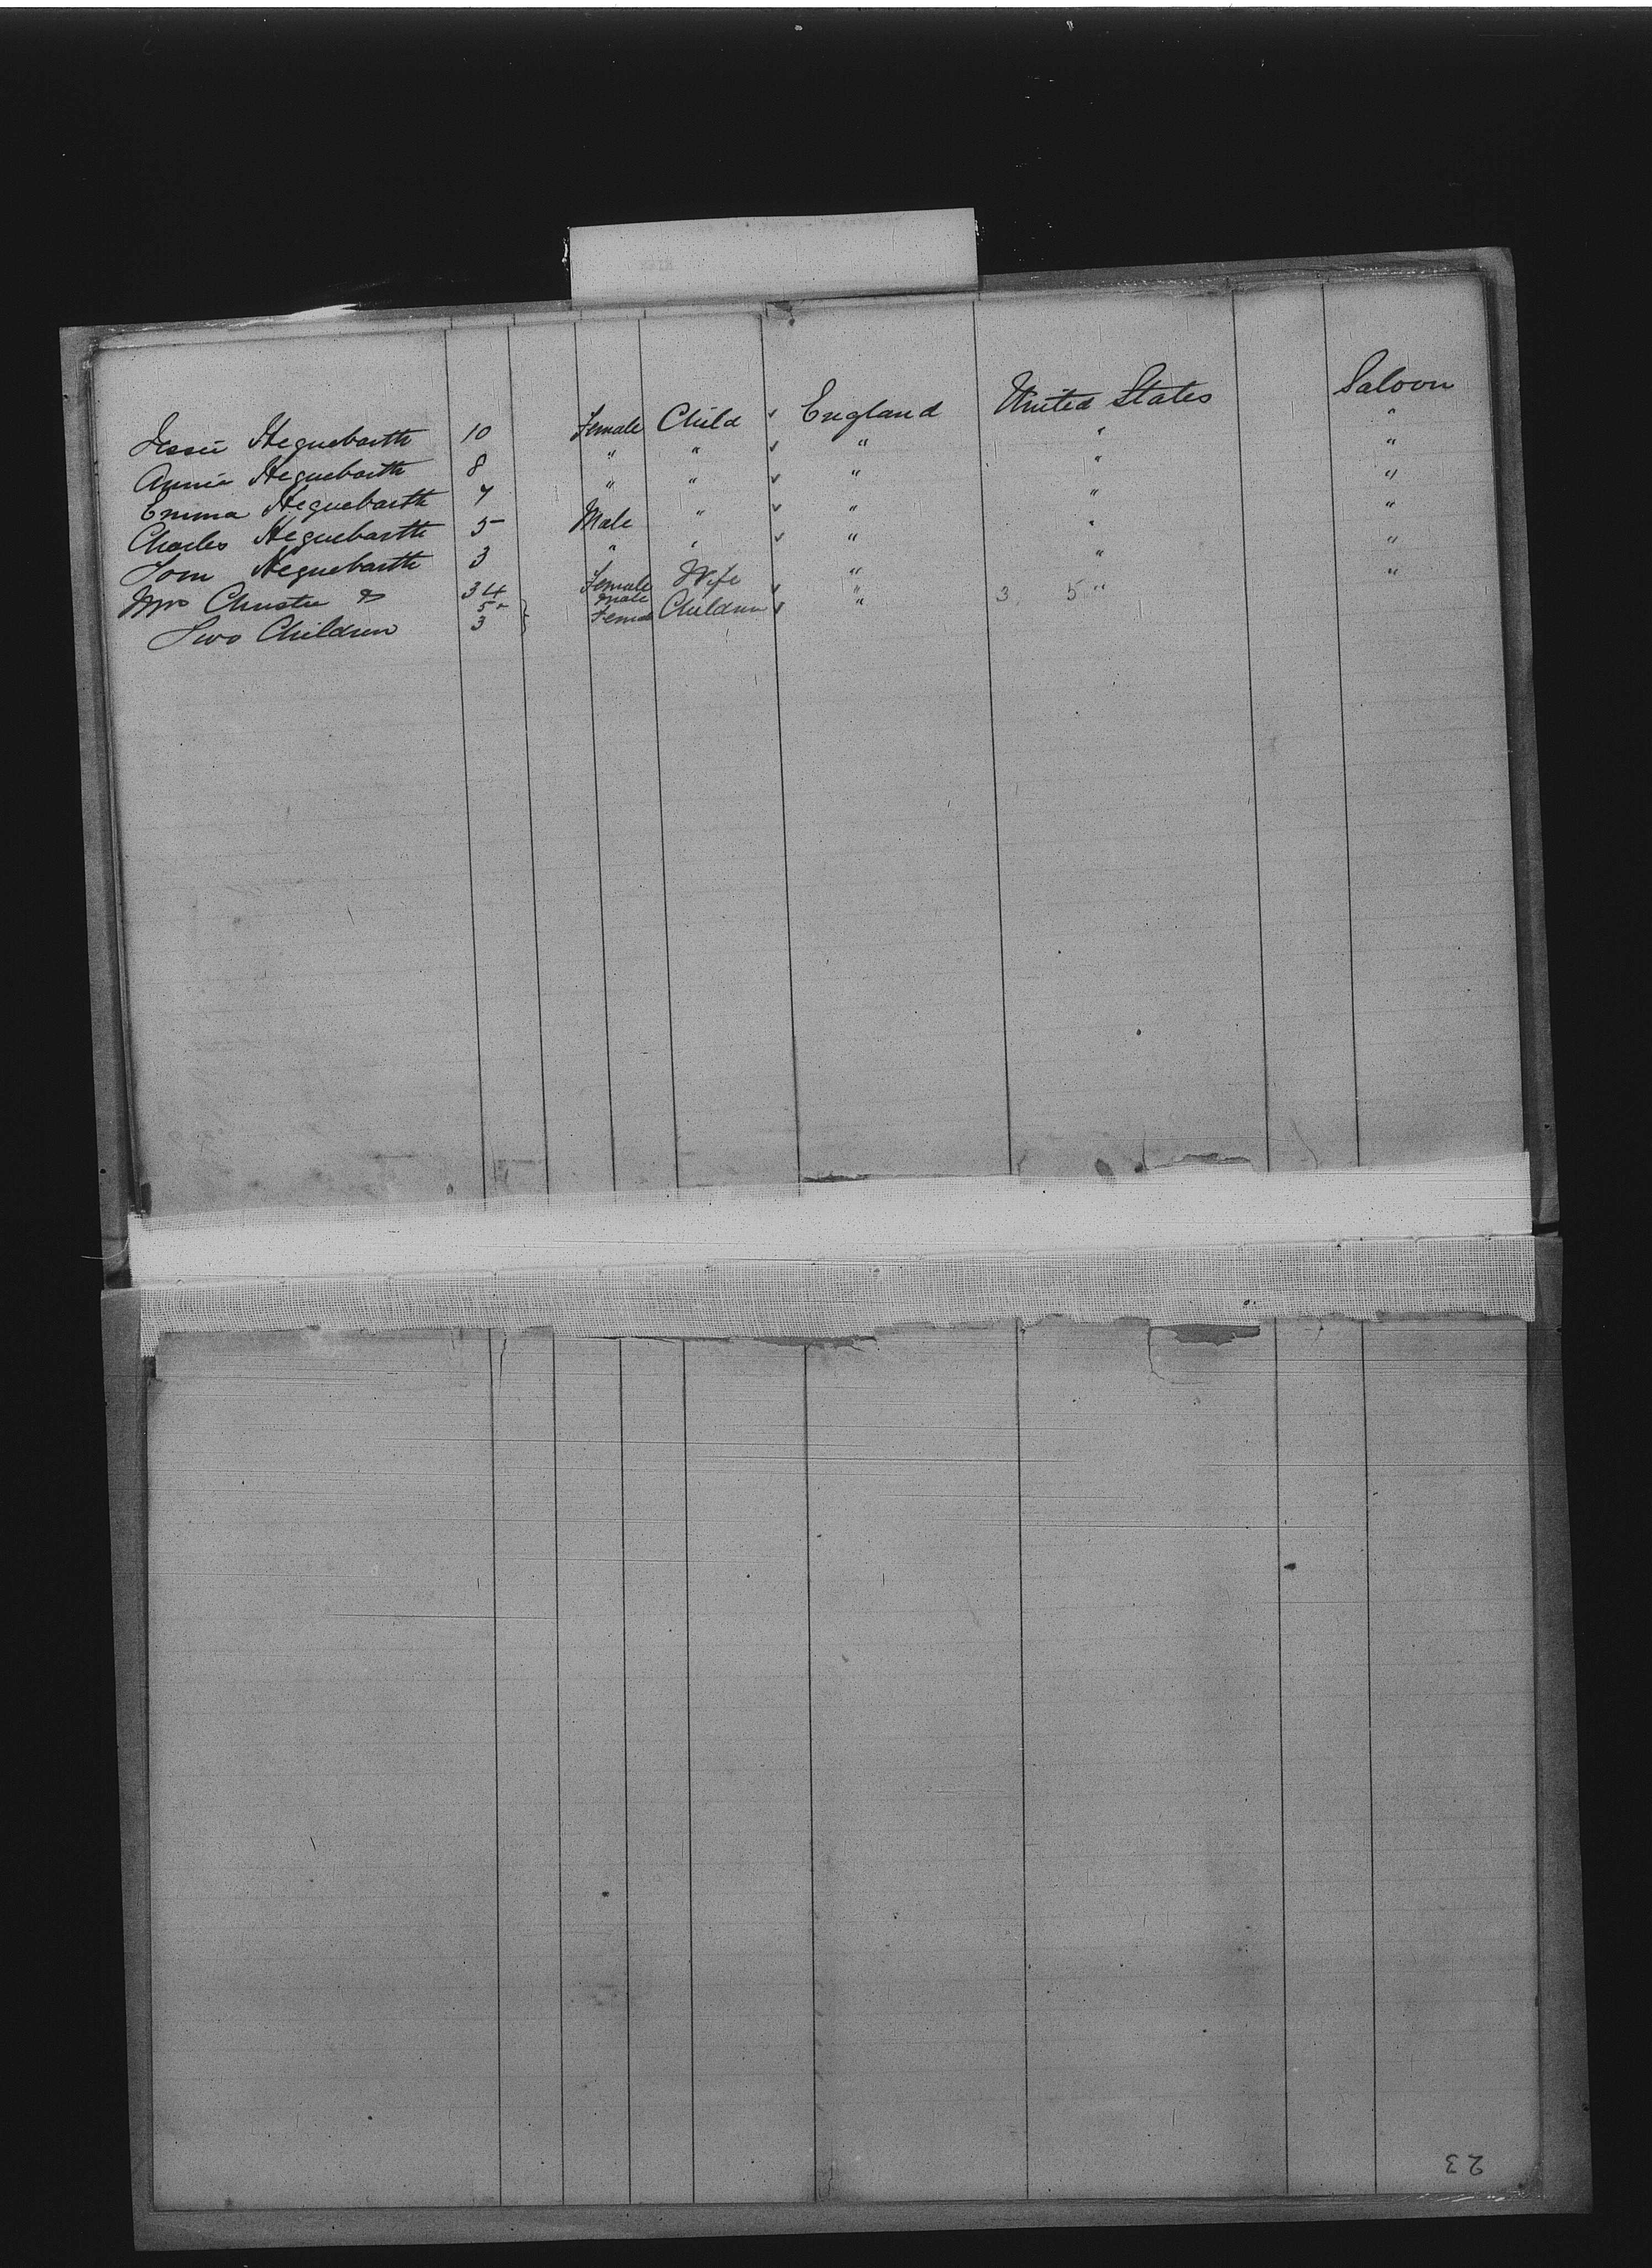 Jessie Heguebarth 10 Female Child ✓ England United States Saloon
Annie Heguebarth 8 " " ✓ " " "
Emma Heguebarth 7 " " ✓ " " "
Charles Heguebarth 5 Male " ✓ " " "
Tom Heguebarth 3 " " ✓ " " "
Mrs Christie & 34 Female Wife ✓ " " "
Two Children 5 Male Children ✓ " 3 5 " "
3 Female
23